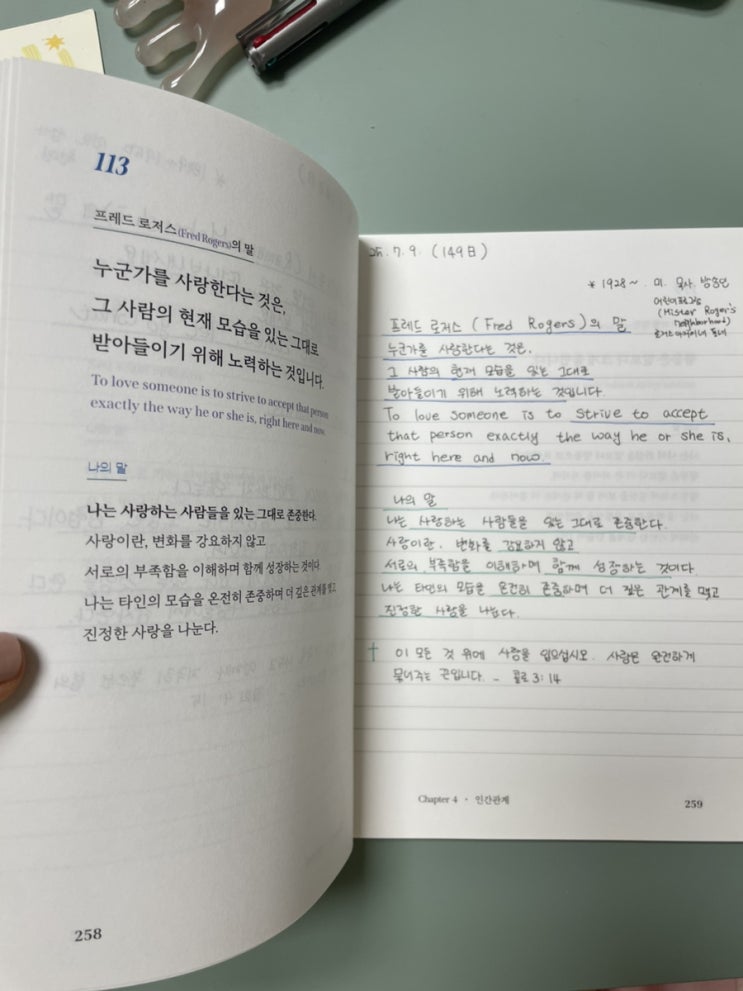 113
프레드 로저스(Fred Rogers)의 말
누군가를 사랑한다는 것은,
그 사람의 현재 모습을 있는 그대로
받아들이기 위해 노력하는 것입니다.
To love someone is to strive to accept that person
exactly the way he or she is, right here and now.
나의 말
나는 사랑하는 사람들을 있는 그대로 존중한다.
사랑이란, 변화를 강요하지 않고
서로의 부족함을 이해하며 함께 성장하는 것이다.
나는 타인의 모습을 온전히 존중하며 더 깊은 관계를 맺고
진정한 사랑을 나눈다.
258
25. 7. 9. (149日)
* 1928~. 미. 목사 방송인
어린이프로
(Mister Roger's
Neighborhood)
로저스 아저씨네 동네
프레드 로저스 (Fred Rogers)의 말
누군가를 사랑한다는 것은.
그 사람의 현재 모습을 있는 그대로
받아들이기 위해 노력하는 것입니다.
To love someone is to strive to accept
that person exactly the way he or she is,
right here and now.
나의 말
나는 사랑하는 사람들을 있는 그대로 존중한다.
사랑이란. 변화를 강요하지 않고
서로의 부족함을 이해하며 함께 성장하는 것이다.
나는 타인의 모습을 온전히 존중하며 더 깊은 관계를 맺고
진정한 사랑을 나눈다.
† 이 모든 것 위에 사랑을 입으십시오. 사랑은 완전하게
묶어주는 끈입니다. - 콜로 3:14
Chapter 4 · 인간관계
259